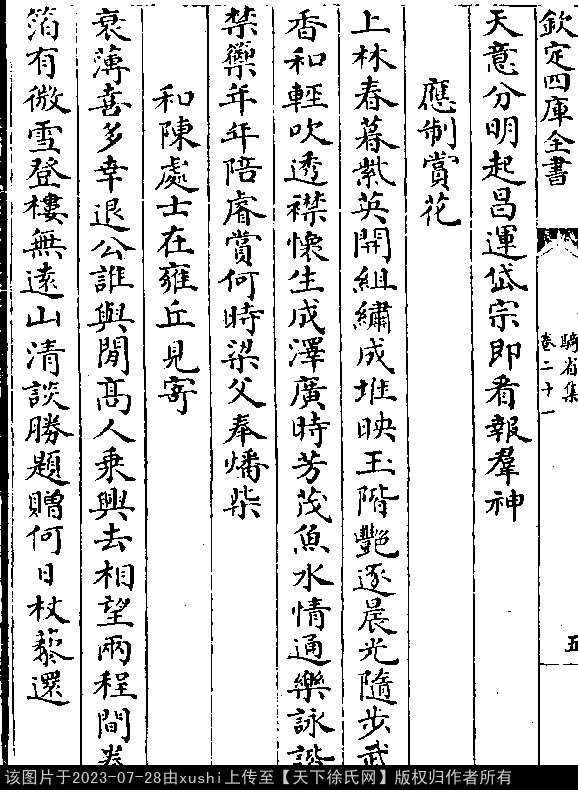 欽定四庫全書
騎省集
卷二十一
五
天意分明起昌運岱宗即看報羣神
應制賞花
上林春暮紫英開組繡成堆映玉階艷逐晨光隨步武
香和輕吹透襟懷生成澤廣時芳茂魚水情通樂詠諧
禁籞年年陪睿賞何時梁父奉燔柴
和陳處士在雍丘見寄
衰薄喜多幸退公誰與閒高人乘興去相望兩程間
箔有微雪登樓無遠山清談勝題贈何日杖藜還
该图片于2023-07-28由xushi上传至【天下徐氏网】版权归作者所有